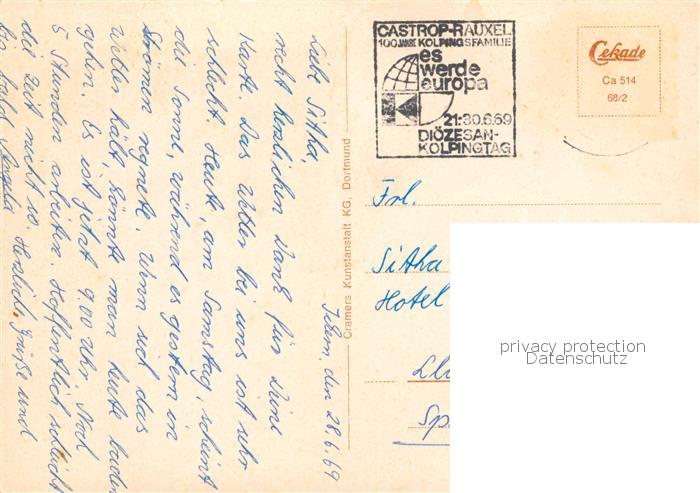 CASTROP-RAUXEL
100 JAHRE KOLPINGSFAMILIE
es
werde
europa
21.-30.6.69
DIÖZESAN-
KOLPINGTAG
Cekade
Ca 514
68/2
Cramers Kunstanstalt KG, Dortmund
Ickern, den 28.6.69
Liebe Sitha,
recht herzlichen Dank für Deine
Karte. Das Wetter bei uns ist sehr
schlecht. Heute, am Samstag, scheint
die Sonne, während es gestern in
Strömen regnete. Wenn sich das
Wetter hält, könnte man heute baden
gehen. Es ist jetzt 9.00 Uhr. Noch
5 Stunden arbeiten. Hoffentlich schleicht
die Zeit nicht so. Herzliche Grüße und
bis bald Angela
Frl.
Sitha
Hotel
Ll
Sp
privacy protection
Datenschutz